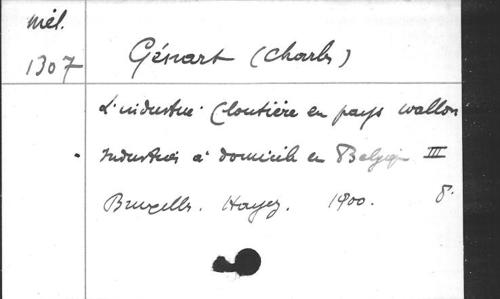 Mél.
1307
Génart (Charles)
L'industrie Cloutière en pays wallon
Industries à domicile en Belgique III
Bruxelles. Hayez. 1900. 8°